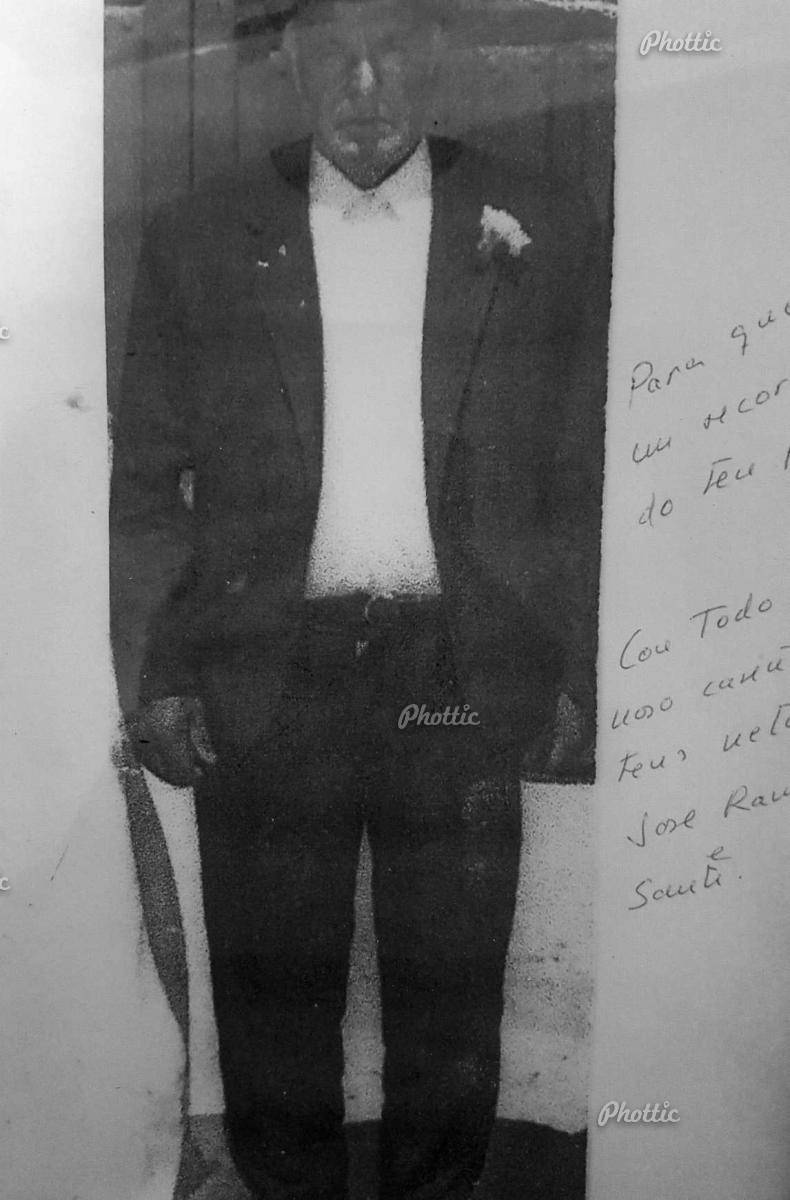 Phottic
Para que
un recor
do teu
Con Todo
noso cariñ
teus neto
Jose Ram
e
Santi.
Phottic
Phottic